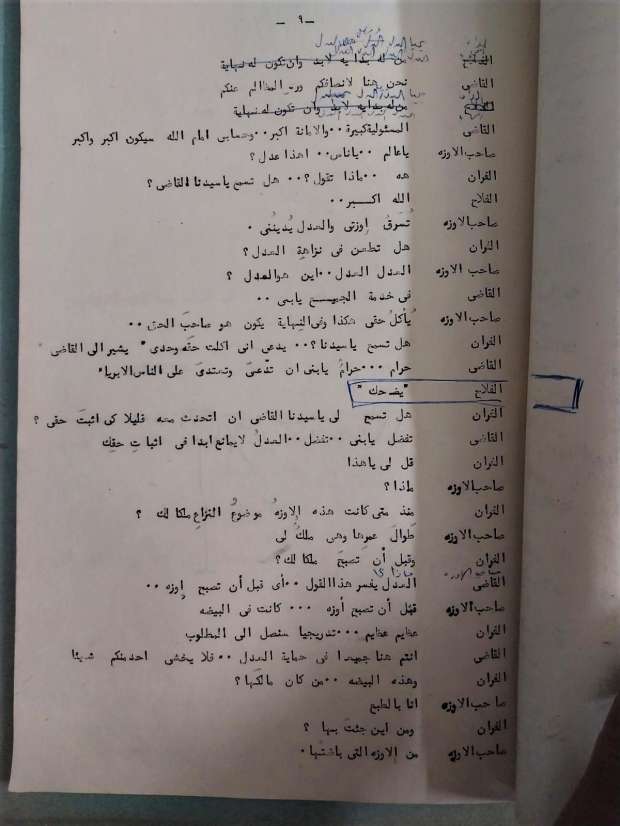 - ٩ -
يحيا العدل
الفلاح من له بدايه لابد وان تكون له نهاية
القاضى نحن هنا لانصافكم ورد المظالم عنكم
يحيا العدل
من له بدايه لابد وان تكون له نهاية
القاضى المسئولية كبيرة ٠٠ والامانة اكبر ٠٠ وحسابى امام الله سيكون اكبر واكبر
صاحب الاوزه ياعالم ٠٠ ياناس ٠٠ اهذا عدل ؟
الفران هه ٠٠ ماذا تقول ؟ ٠٠ هل تسمح ياسيدنا القاضى ؟
الفلاح الله اكسبر ٠٠
صاحب الاوزه تُسرَقُ اِوزتى والعدل يُدينُنى ٠
الفران هل تطعن فى نزاهةِ العدل ؟
صاحب الاوزه العدل العدل ٠٠ اين هو العدل ؟
القاضى فى خدمة الجميسع يابنى ٠٠
صاحب الاوزه يُأكلُ حقى هكذا وفى النهاية يكون هو صاحبَ الحق ٠٠
الفران هل تسمح ياسيدنا ؟ ٠٠ يدعى انى اكلت حقَه وحدى " يشير الى القاضى "
القاضى حرام ٠٠٠ حرامٌ يابنى ان تدّعىَ وتعتدىَ على الناس الابرياء
الفلاح " يضحك "
الفران هل تسمح لى ياسيدنا القاضى ان اتحدث معه قليلا كى اثبتَ حقى ؟
القاضى تفضل يابنى ٠٠ تفضل ٠٠ العدلُ لايمانع ابدا فى اثباتِ حقِك
الفران قل لى ياهذا
صاحب الاوزه ماذا ؟
الفران منذ متى كانت هذه الاوزهُ موضوعُ النزاعِ ملكا لك ؟
صاحب الاوزه طَوالَ عمرِها وهى ملكٌ لى
الفران وقبل أن تصبحَ ملكا لك ؟
صاحب الاوزه ماذا ؟!
القاضى العدل يفسر هذا القول ٠٠ أى قبل أن تصبح اِوزه ٠٠
صاحب الاوزه قبْل أن تصبح أوزه ٠٠٠ كانت فى البيضه
الفران عظيم عظيم ٠٠٠ تدريجيا سنصل الى المطلوب
القاضى انتم هنا جميعا فى حماية العدل ٠٠ فلا يخشى احدمنكم شيئا
الفران وهذه البيضه ٠٠ من كان مالكَها ؟
صاحب الاوزه انا بالطبع
الفران ومن اين جئتَ بها ؟
صاحب الاوزه من الاوزه التى باضتها ٠